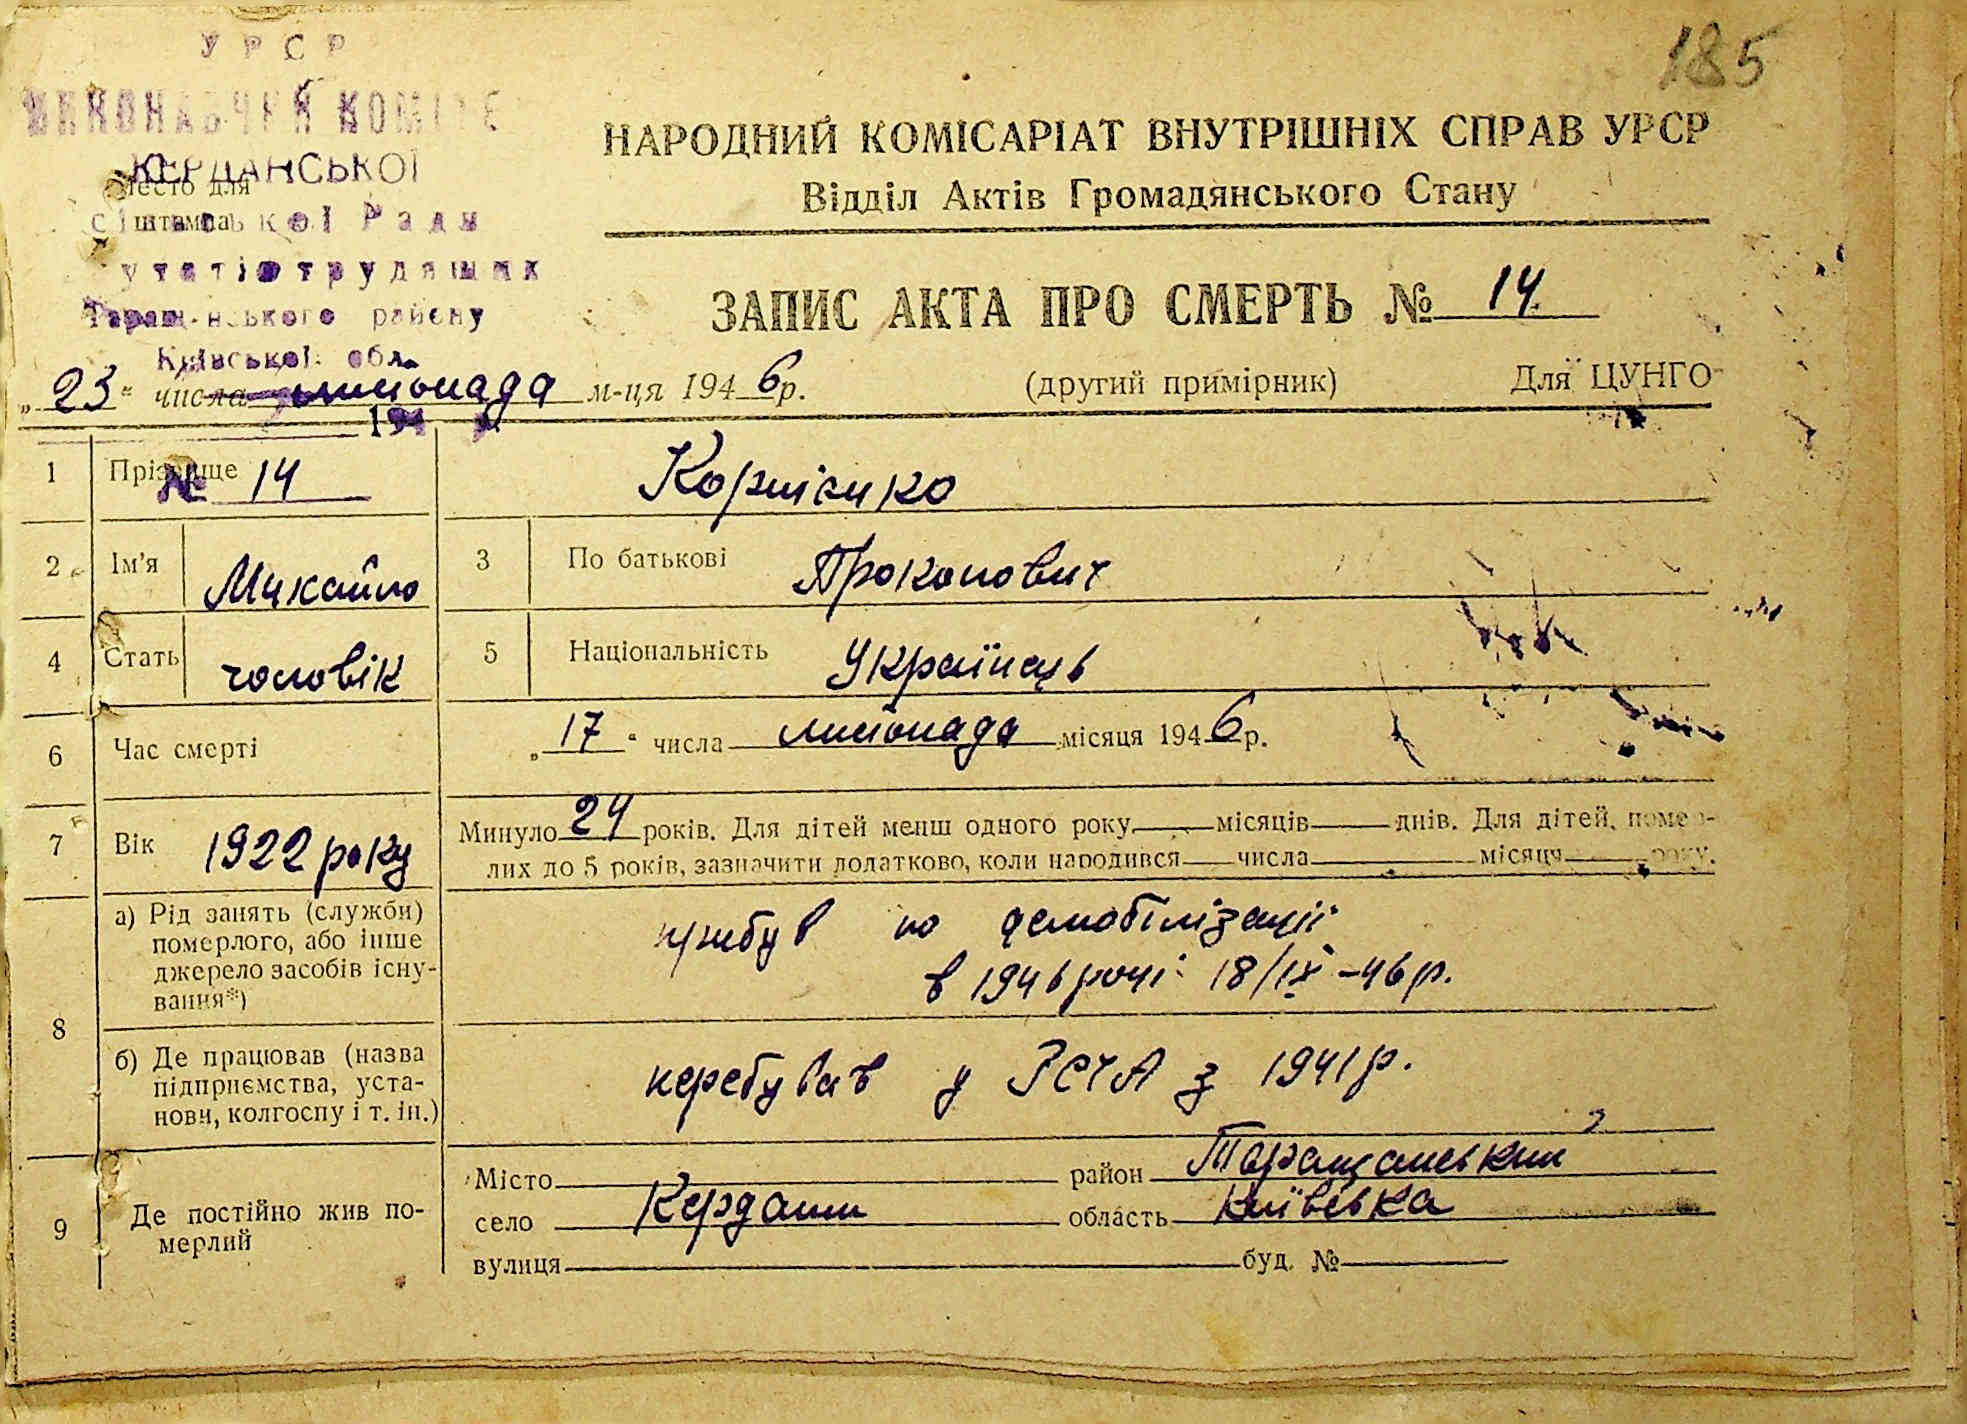 185
УРСР
ВИКОНАВЧИЙ КОМІТЕ
КЕРДАНСЬКОЇ
Место для
штампа
сільської Ради
трудящих
Таращанського району
Київської обл.
194
№ 14
НАРОДНИЙ КОМІСАРІАТ ВНУТРІШНІХ СПРАВ УРСР
Відділ Актів Громадянського Стану
ЗАПИС АКТА ПРО СМЕРТЬ № 14.
„23" числа листопада м-ця 1946р. (другий примірник) Для ЦУНГО
1 Прізвище
2 Ім'я Михайло 3 По батькові Прокопович
4 Стать чоловік 5 Національність Українець
6 Час смерті „17" числа листопада місяця 1946р.
7 Вік 1922 року Минуло 24 років. Для дітей менш одного року — місяців — днів. Для дітей, помер-
лих до 5 років, зазначити додатково, коли народився — числа — місяця — року.
8 а) Рід занять (служби)
померлого, або інше
джерело засобів існу-
вання*)
прибув по демобілізації
в 1946 році 18/IX-46р.
б) Де працював (назва
підприємства, уста-
нови, колгоспу і т. ін.)
перебував у РСЧА з 1941р.
9 Де постійно жив по-
мерлий
Місто район Таращанський
село Кердани область Київська
вулиця буд. №